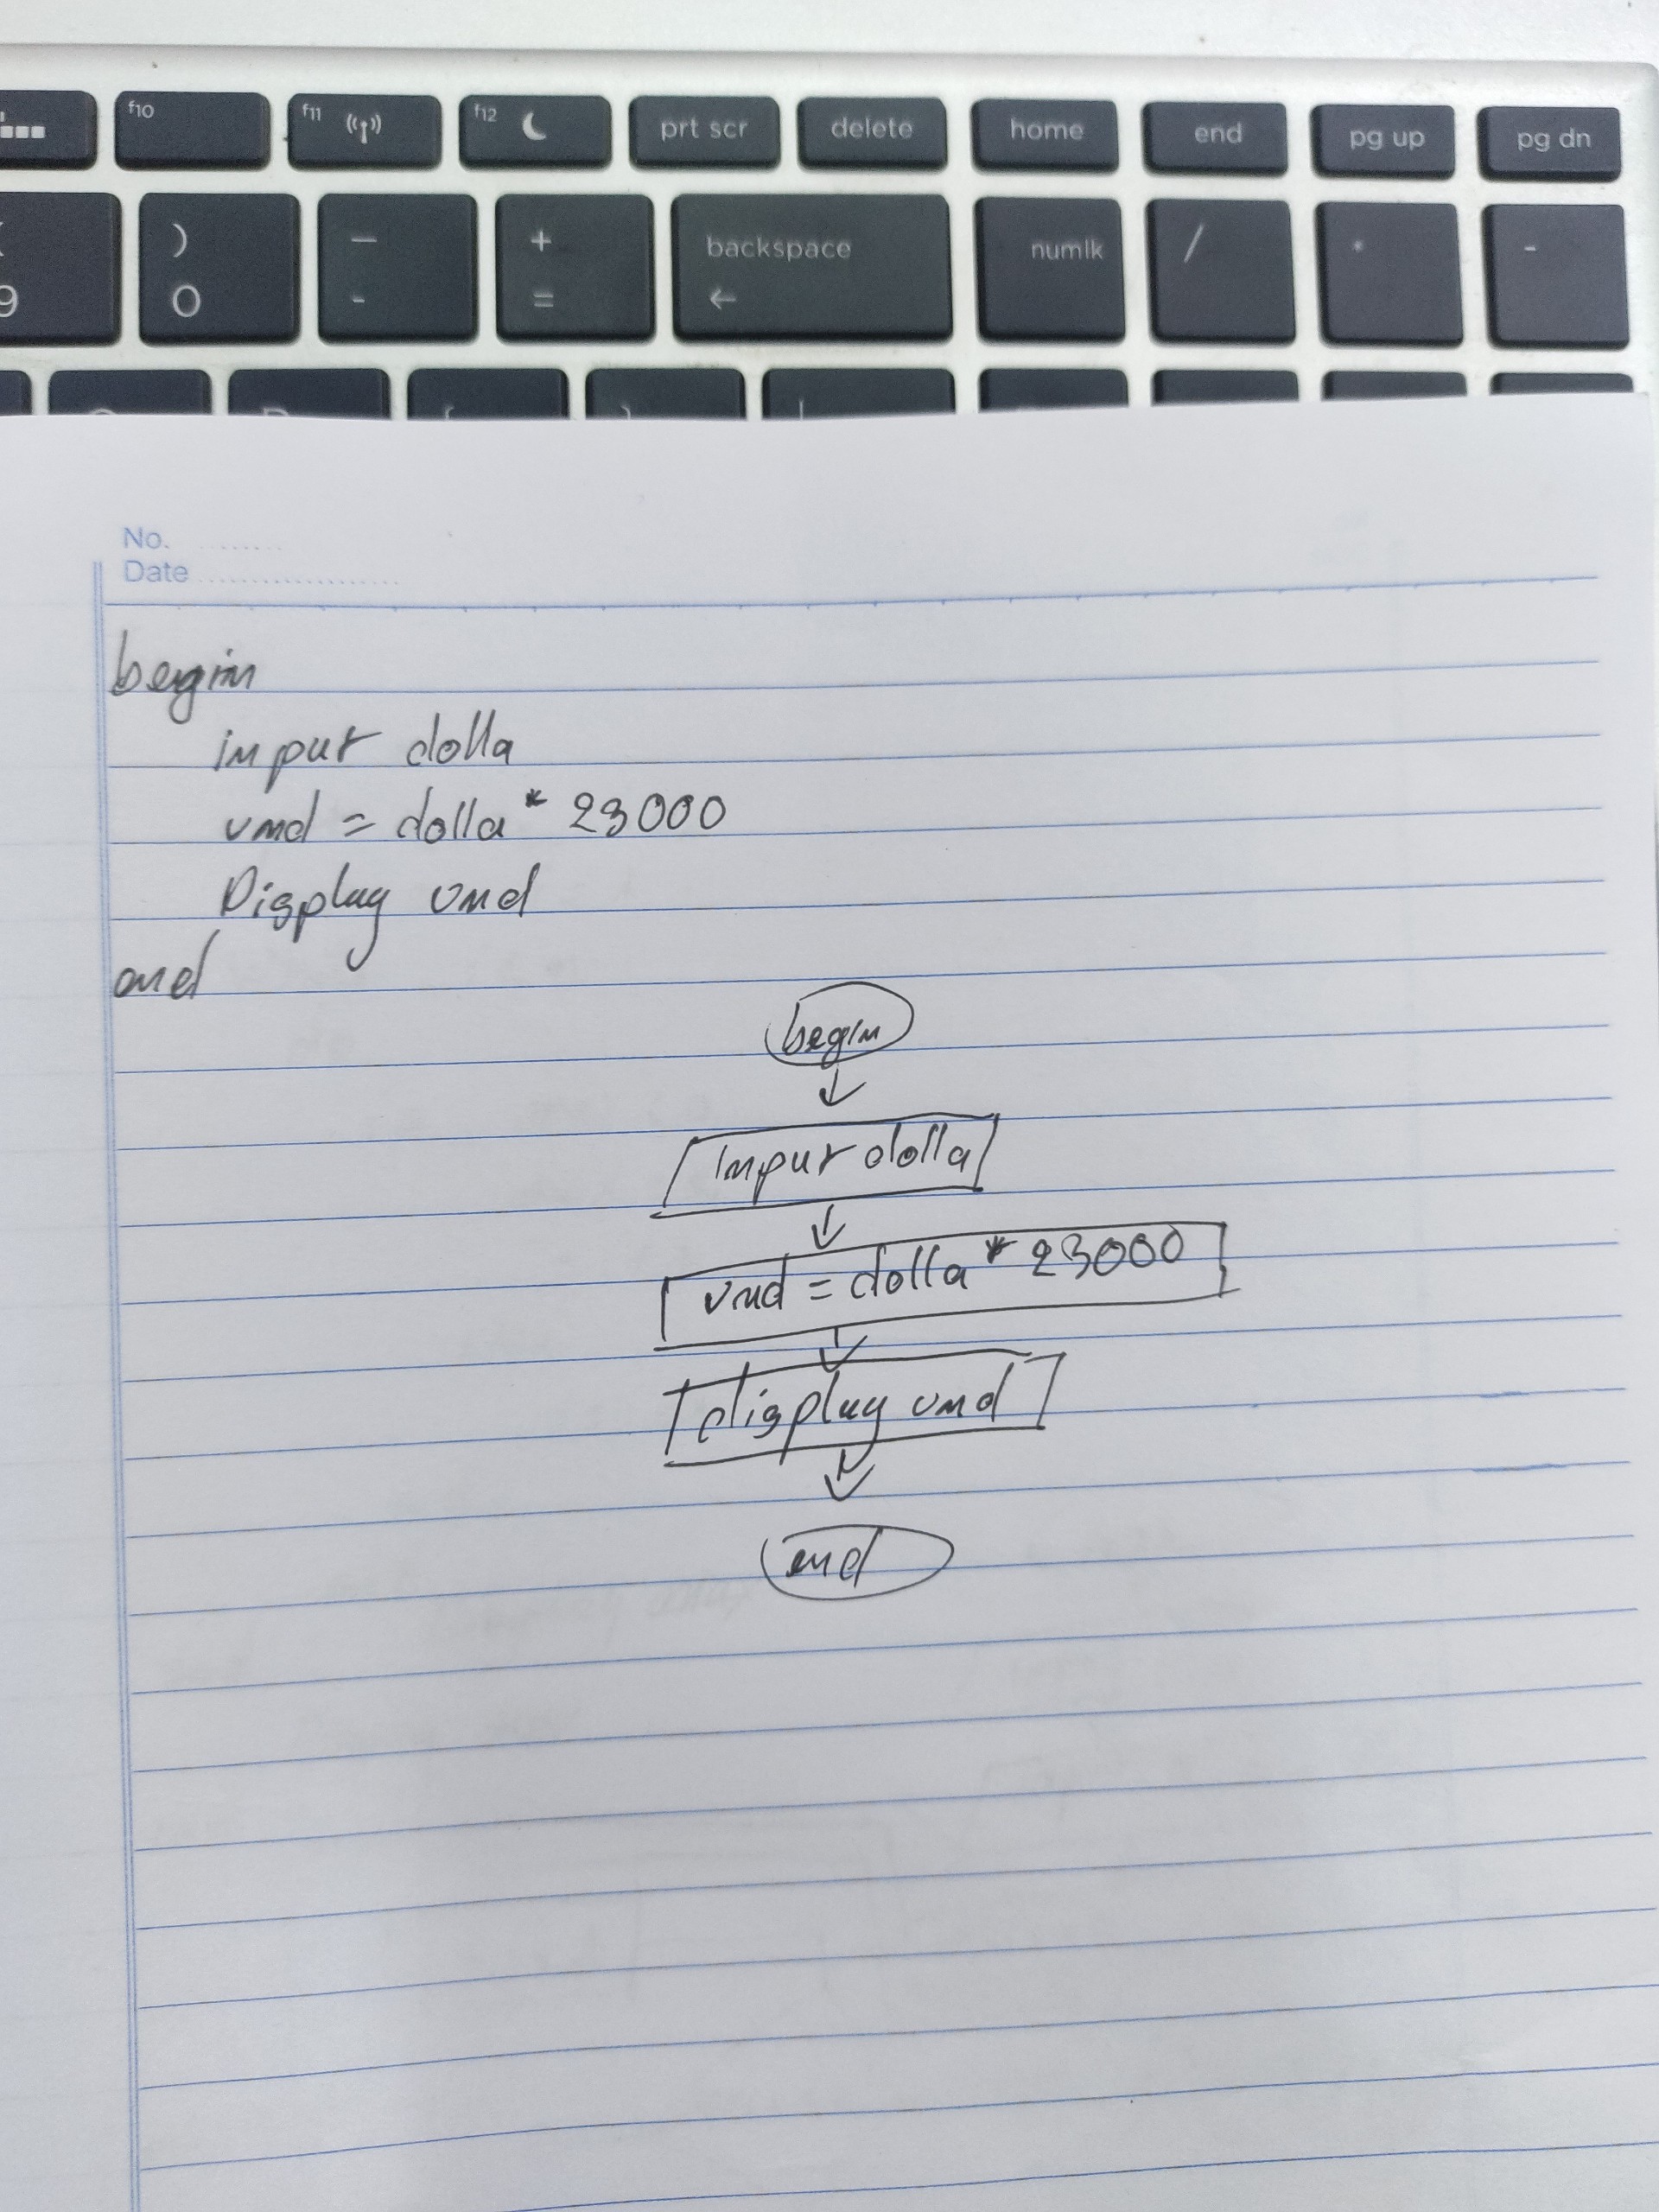 f10 f11 f12 prt scr delete home end pg up pg dn
9 ) 0 — - + = backspace ← numlk / * -
No.
Date
begin
input dolla
vnd = dolla * 23000
Display vnd
end
begin
input dolla
vnd = dolla * 23000
display vnd
end